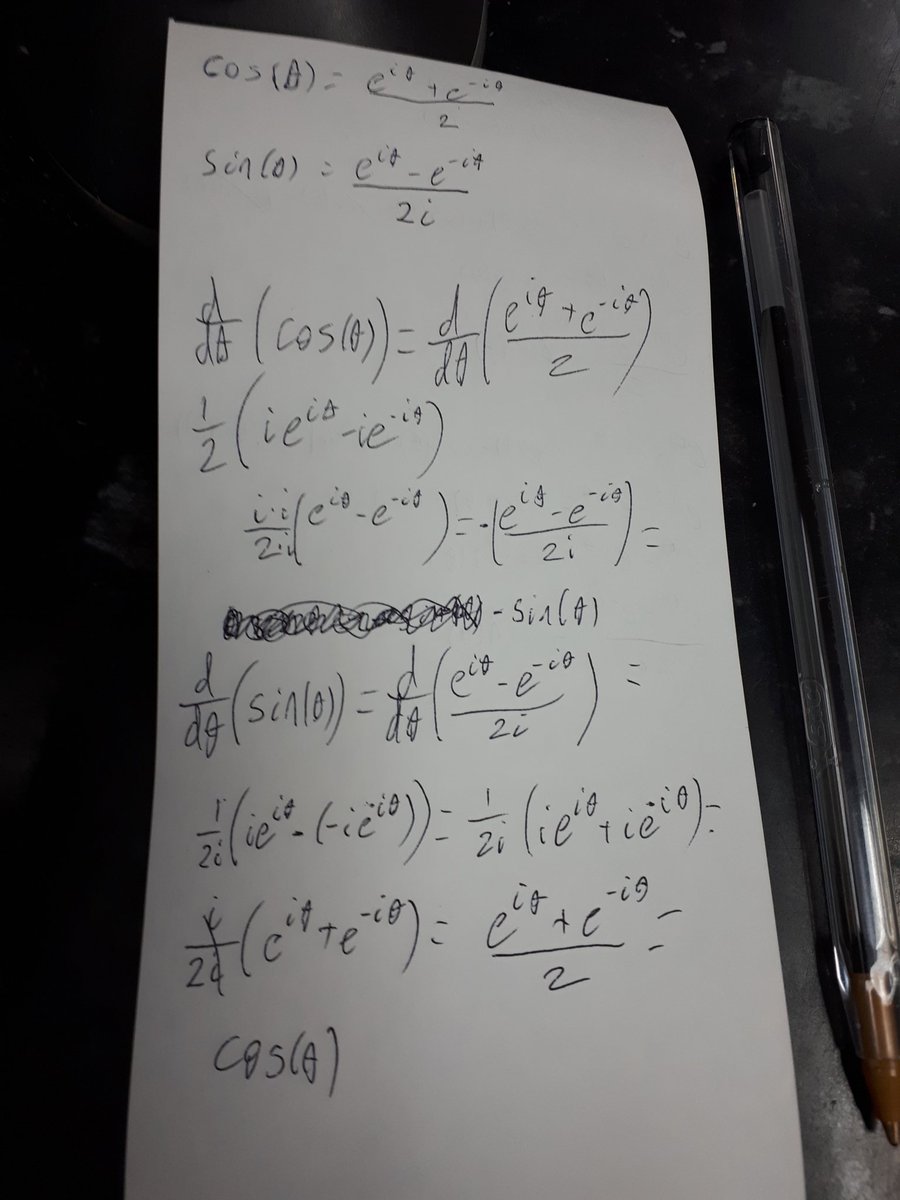 cos(θ) = (e^{iθ} + e^{-iθ})/2
sin(θ) = (e^{iθ} - e^{-iθ})/2i
d/dθ (cos(θ)) = d/dθ ((e^{iθ} + e^{-iθ})/2)
1/2 (ie^{iθ} - ie^{-iθ})
i·i/2i (e^{iθ} - e^{-iθ}) = -((e^{iθ} - e^{-iθ})/2i) =
-sin(θ)
d/dθ (sin(θ)) = d/dθ ((e^{iθ} - e^{-iθ})/2i) =
1/2i (ie^{iθ} - (-ie^{-iθ})) = 1/2i (ie^{iθ} + ie^{-iθ}) =
i/2i (e^{iθ} + e^{-iθ}) = (e^{iθ} + e^{-iθ})/2 =
cos(θ)